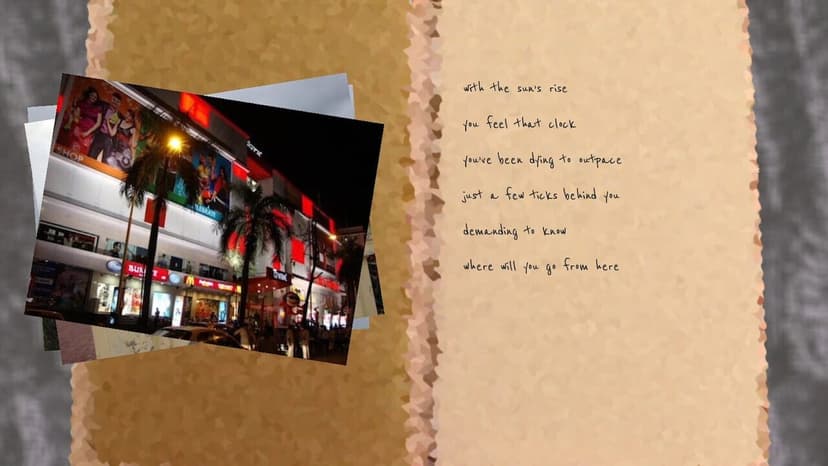 with the sun's rise
you feel that clock
you've been dying to outpace
just a few ticks behind you
demanding to know
where will you go from here